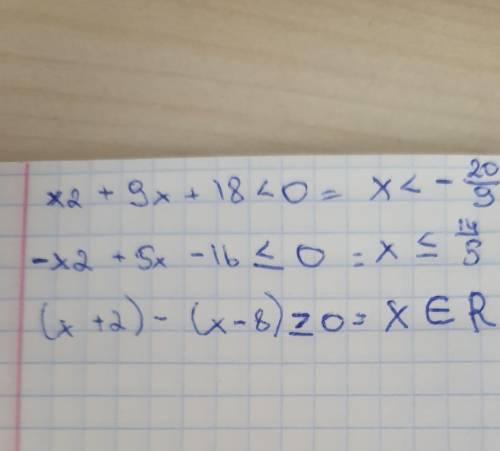 x2 + 9x + 18 < 0 = x < - 20/9
-x2 + 5x - 16 ≤ 0 = x ≤ 14/5
(x + 2) - (x - 8) ≥ 0 = X ∈ R